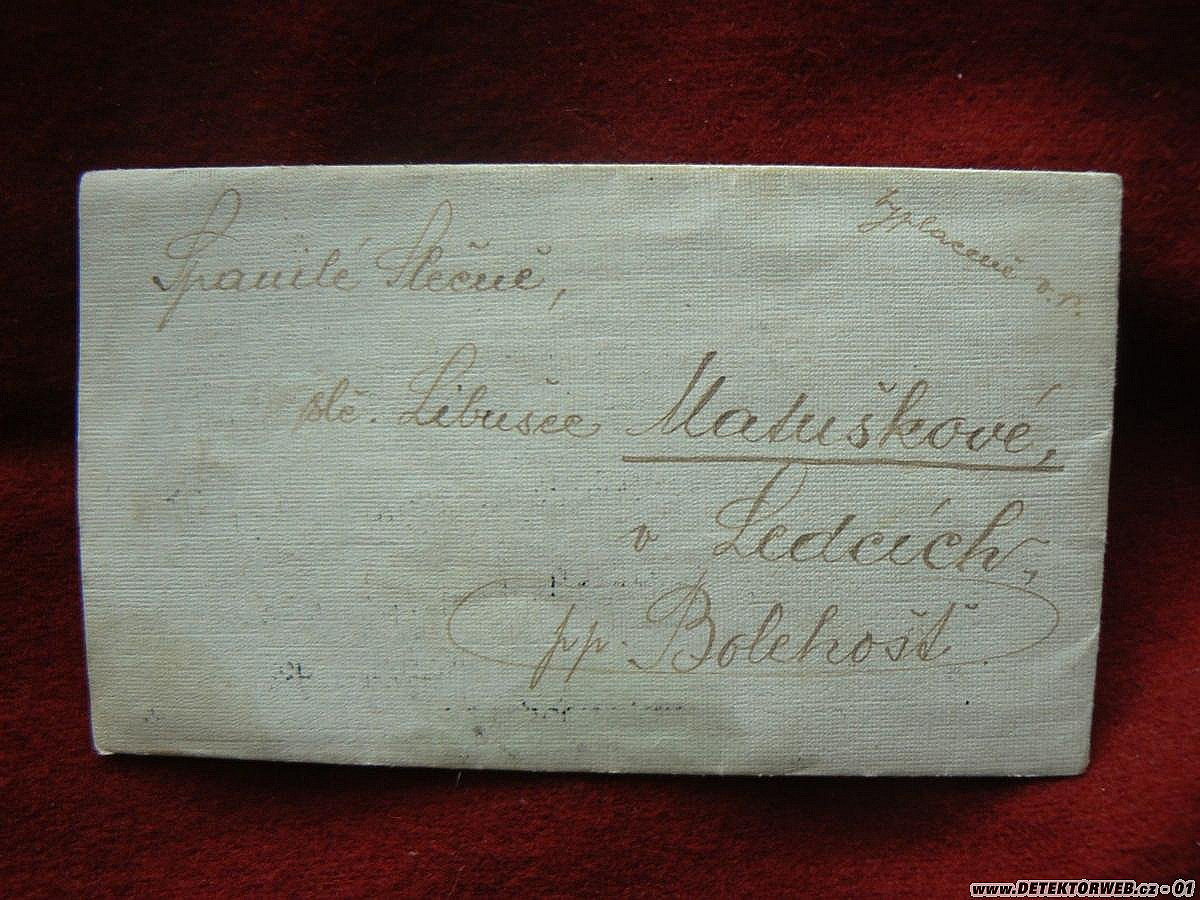 Spanilé Slečně,
Vyplaceně v. r.
slč. Libušce Matuškové,
v Ledcích,
pp. Bolehošť.
www.DETEKTORWEB.cz - 01